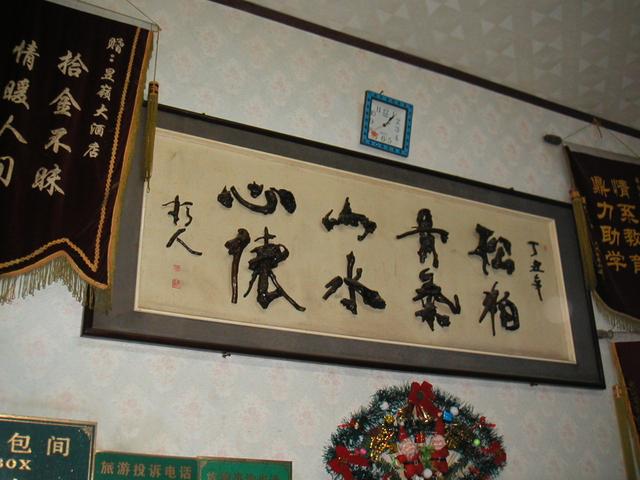 赠：星岭大酒店
拾金不昧
情暖人间
丁丑年
松柏
骨气
山水
心怀
情系教育
鼎力助学
包间
BOX
旅游投诉电话